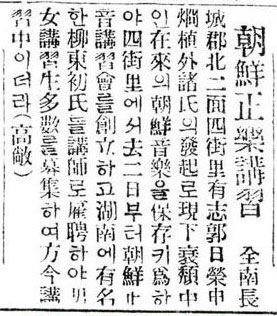 朝鮮正樂講習
全南長
城郡北二面四街里有志郭日榮申
烱植外諸氏의發起로現下衰頹中
인在來의朝鮮音樂을保存키爲하
야四街里에서去二日부터朝鮮正
音講習會를創立하고湖南에有名
한柳東初氏를講師로雇聘하야男
女講習生多數를募集하여方今講
習中이더라(高敞)